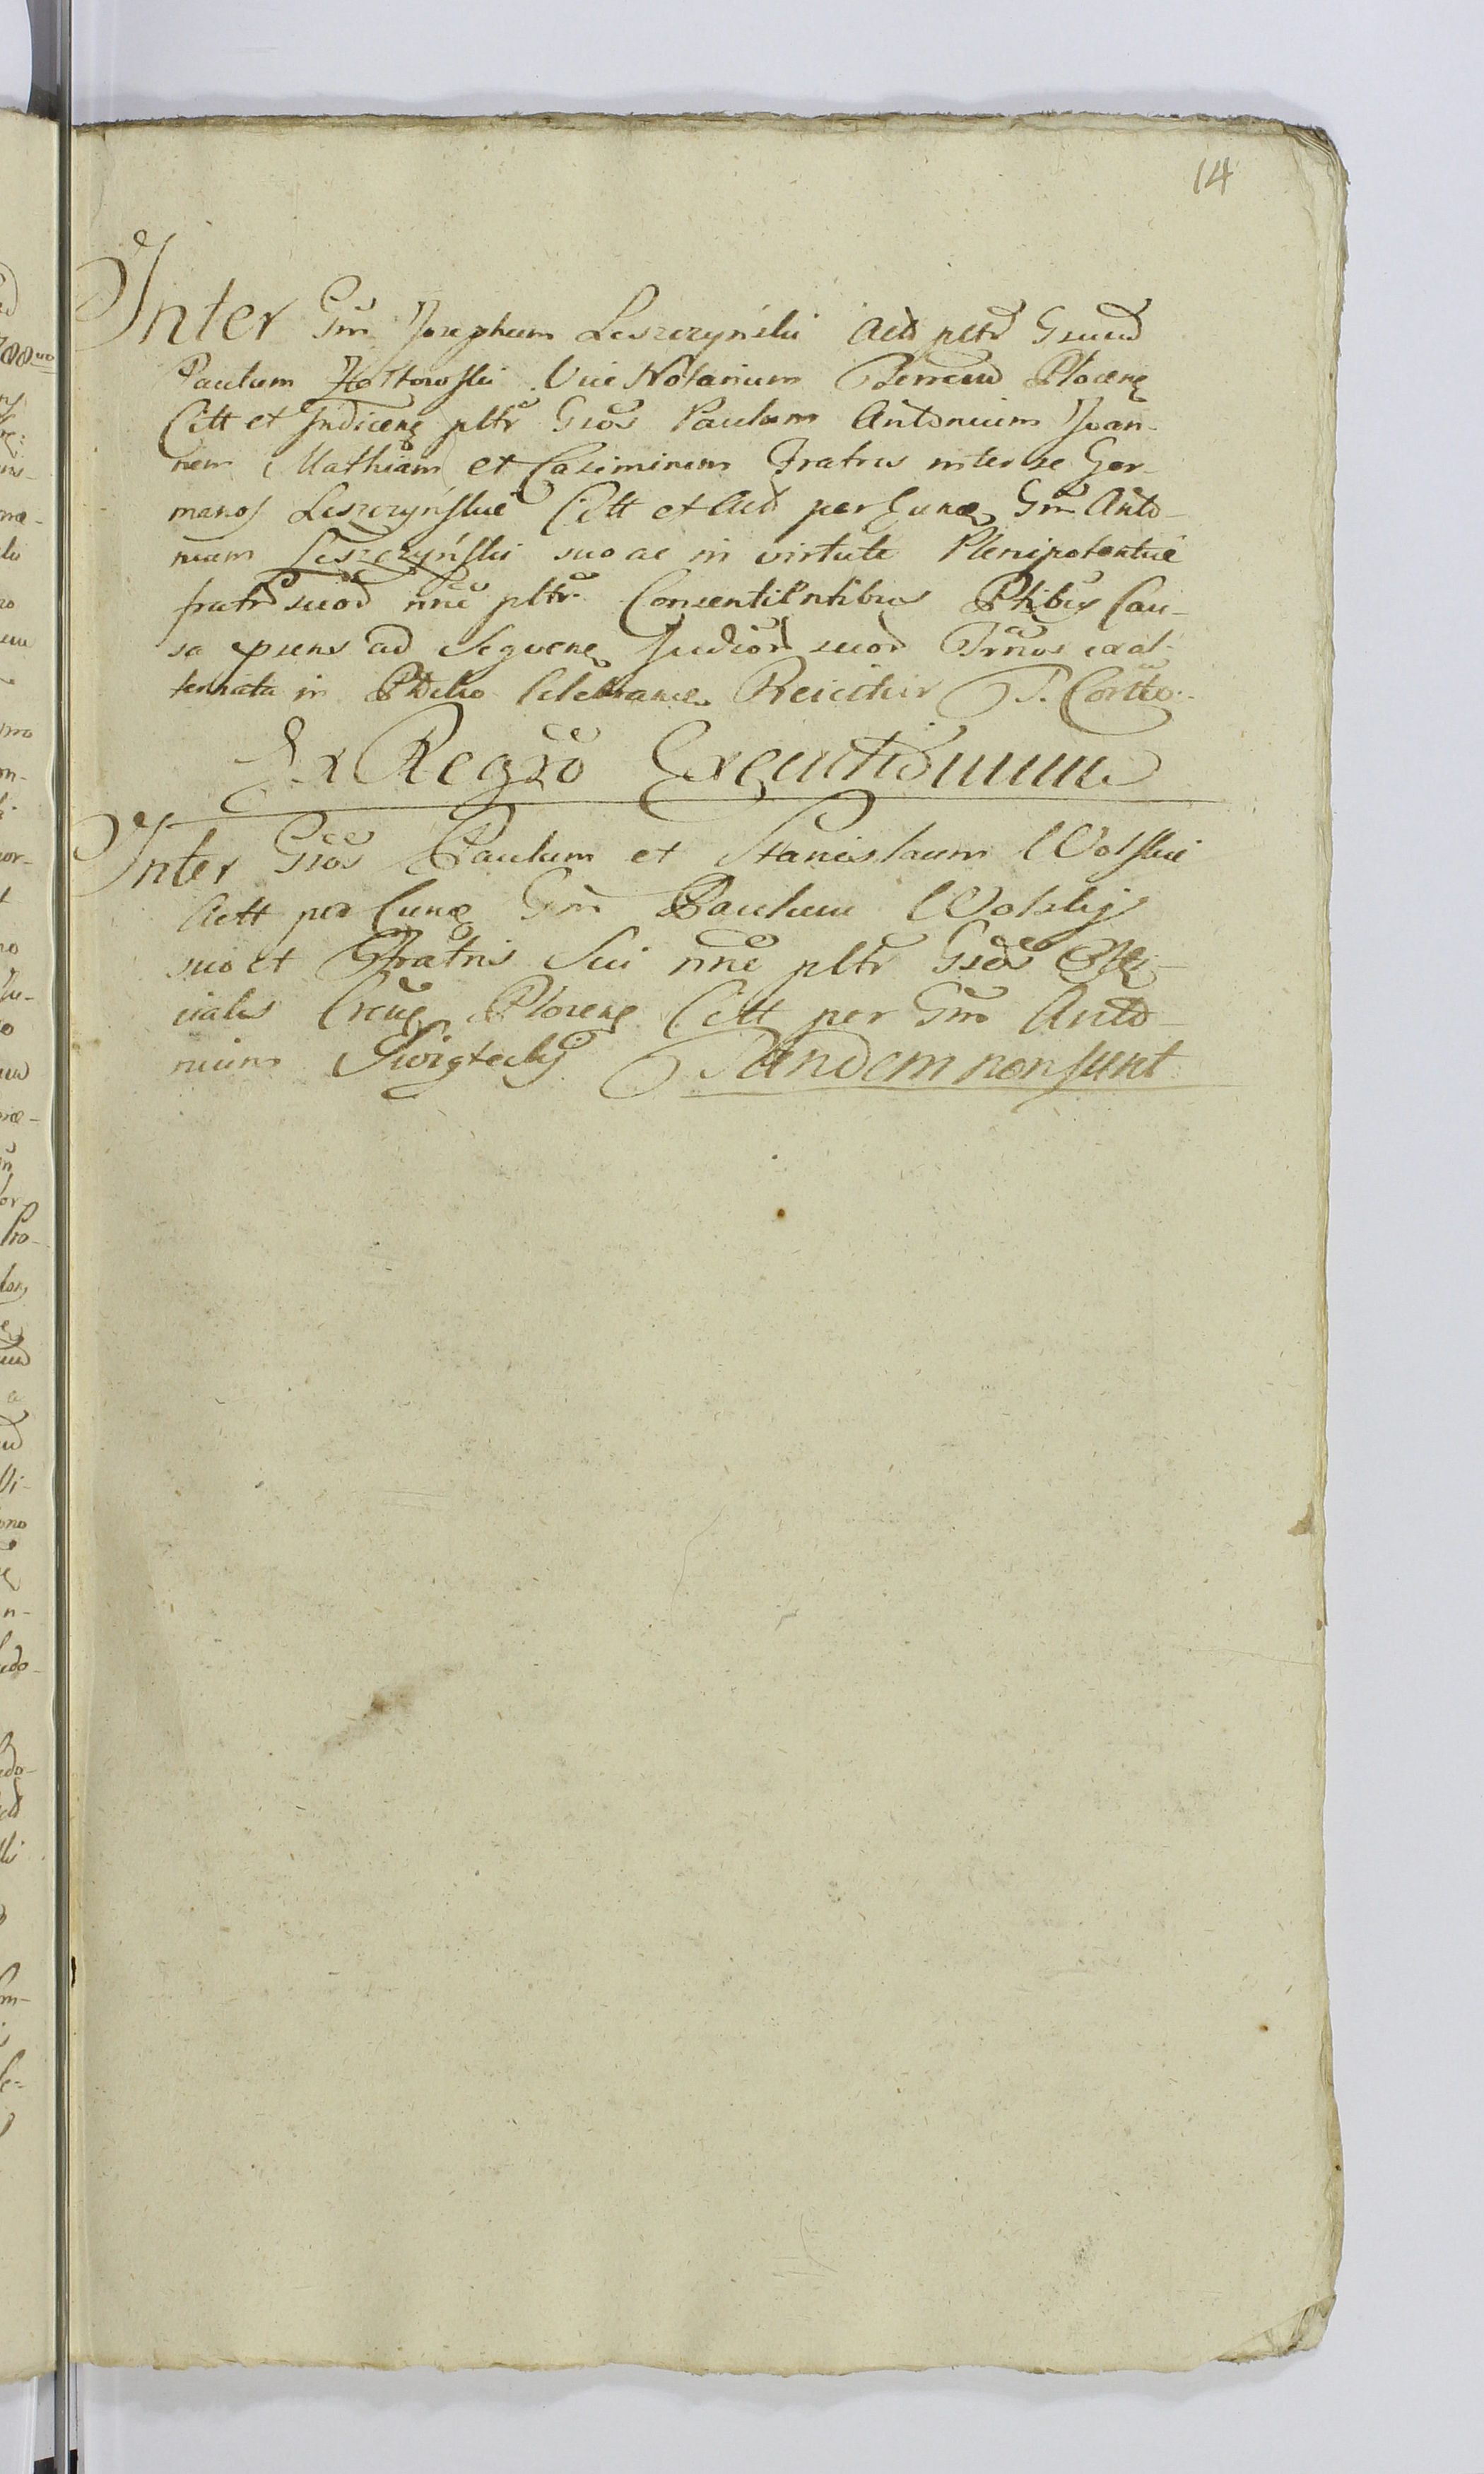 14
Inter Gm Josephum Leszczyński Act pltr Gsum
Paulum Żółtowski Vice Notarium Terreum Plocens
Citt et Judicens pltr Gsos Paulum Antonium Joan-
nem Mathiam et Casimirum Fratres inter se Ger-
manos Leszczyńskie Citt et Act per eund Gm Anto-
nium Leszczyński suo ac in virtute Plenipotentiae
fratr suor nne pltr Consentientibus Ptibus Cau-
sa psens ad Sequens Judior suor Trnos ex al-
ternata in celebrand Reiicitur P. Cortto
Ex Regro Executionum
Inter Gsos Paulum et Stanislaum Wolskie
Actt per eund Gm Paulum Wolskij
suo et Fratris Sui nne pltr Gsos Offi-
ciales Crens Plocens Citt per Gm Anto-
nium Świętecky Tandem non sunt